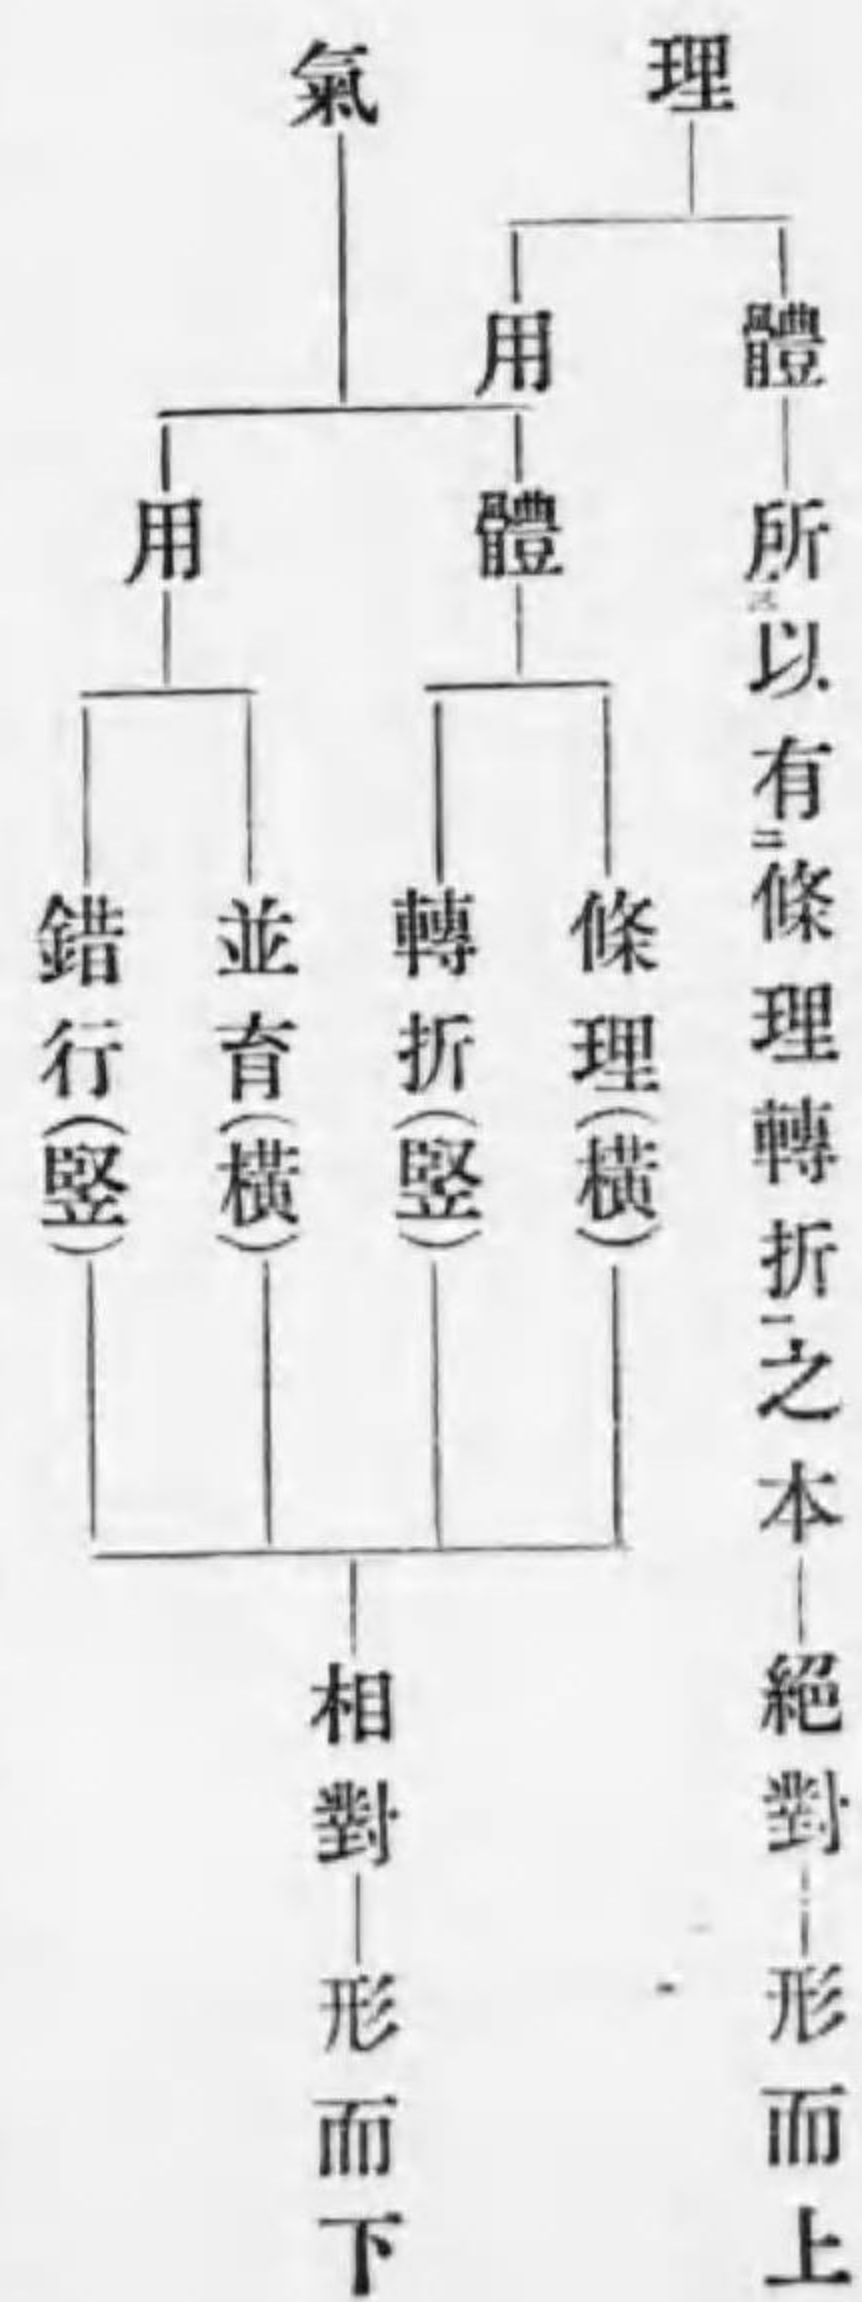 理
體
所以有二條理轉折一之本
絕對
形而上
用
氣
體
條理(橫)
轉折(竪)
用
並育(橫)
錯行(竪)
相對
形而下